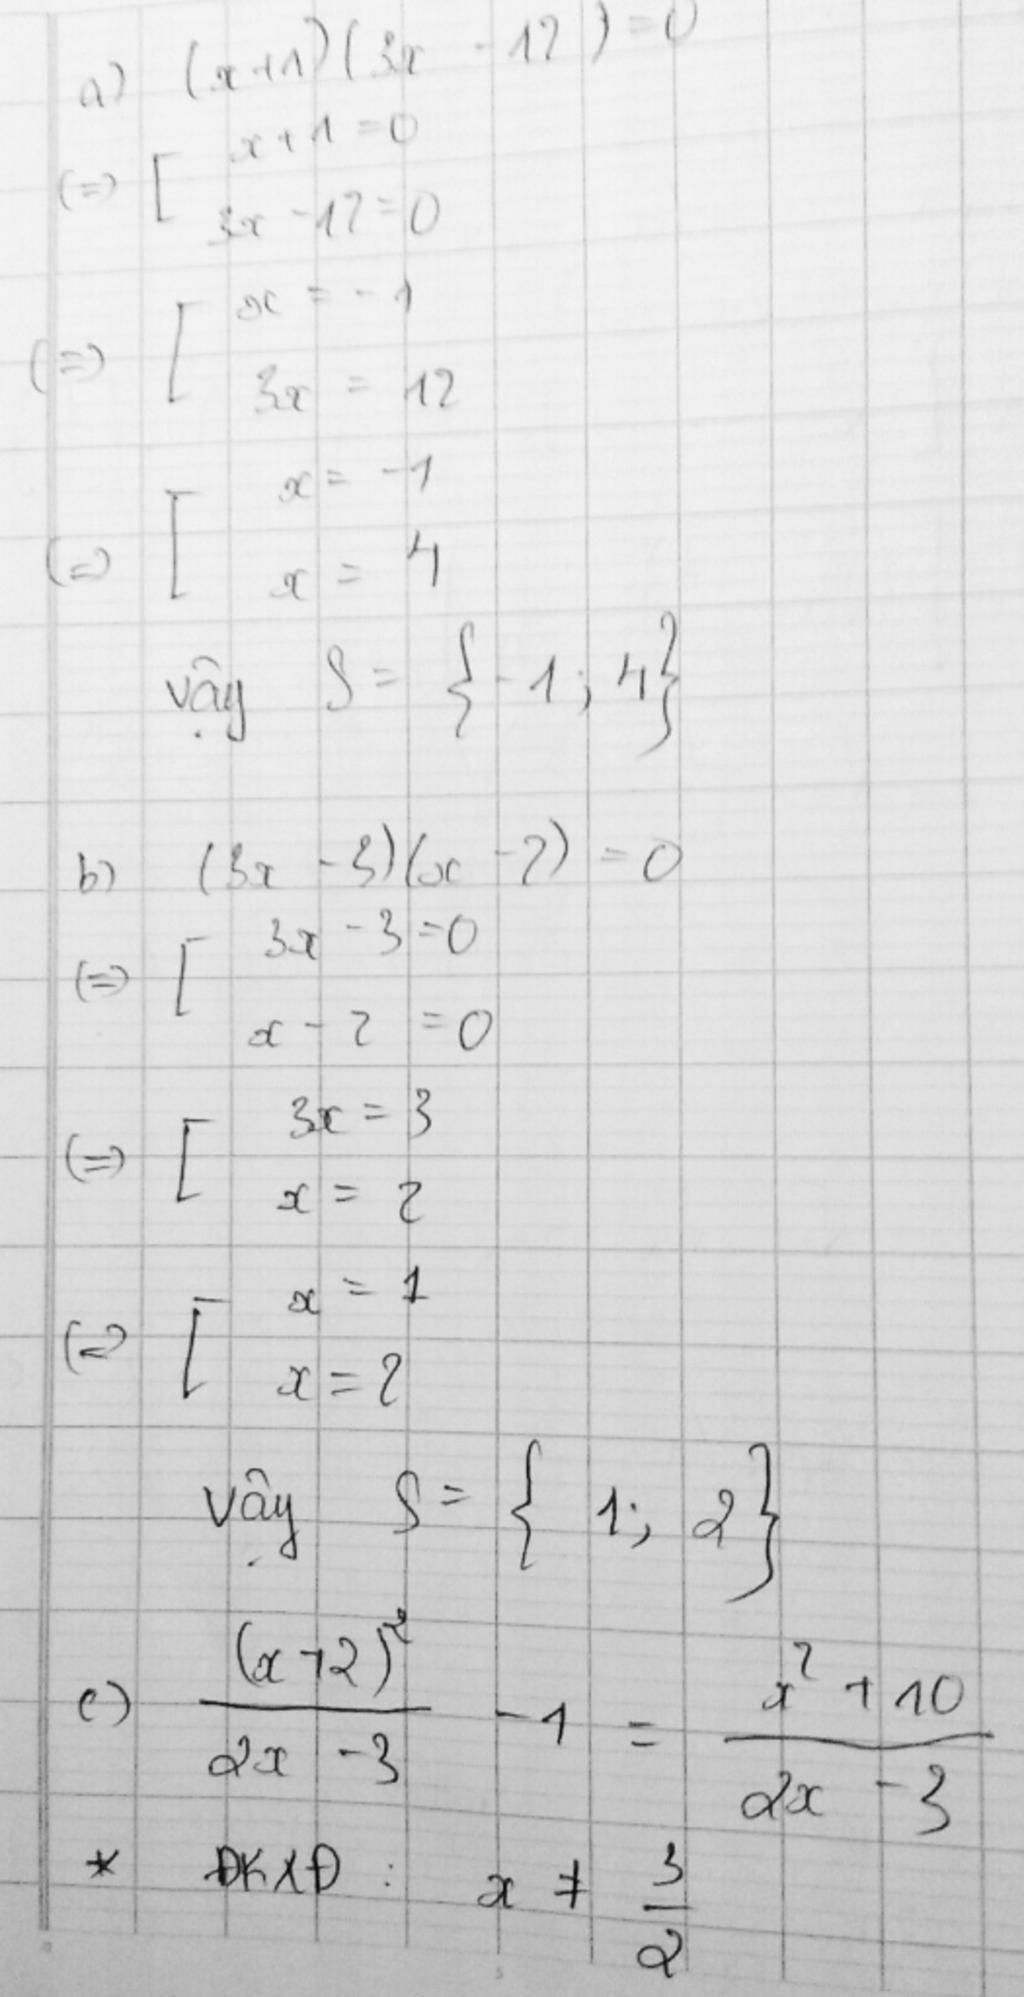 a) (x+1)(3x - 12) = 0
(=) [ x + 1 = 0
3x - 12 = 0
(=) [ x = -1
3x = 12
(=) [ x = -1
x = 4
vậy S = { -1; 4}
b) (3x - 3)(x - 2) = 0
(=) [ 3x - 3 = 0
x - 2 = 0
(=) [ 3x = 3
x = 2
(=) [ x = 1
x = 2
vậy S = { 1; 2}
c) (x+2)² / (2x - 3) - 1 = (x² + 10) / (2x - 3)
* ĐKXĐ : x ≠ 3/2